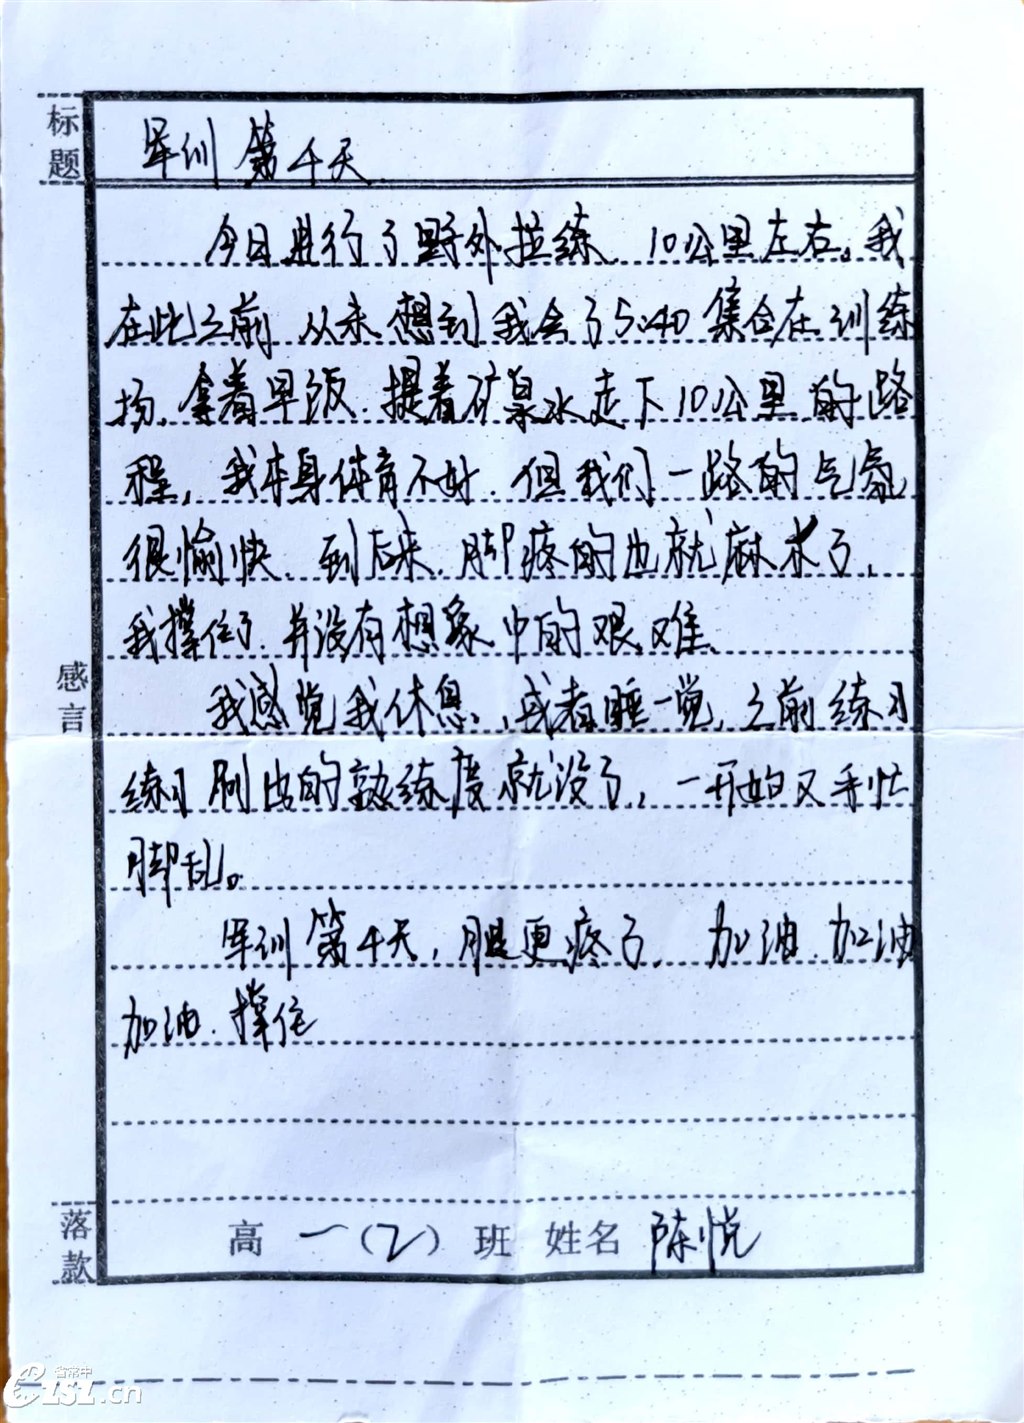 标题
军训第4天
今日进行了野外拉练 10公里左右。我
在此之前 从未想到我会了5:40集合在训练
场, 拿着早饭. 提着矿泉水走下10公里的路
程, 我本身体育不好. 但我们一路的气氛
很愉快. 到后来. 脚疼的也就麻木了,
我撑住了. 并没有想象中的艰难.
感言
我感觉我休息, 或者睡一觉, 之前练习
练习刷出的熟练度就没了, 一开始又手忙
脚乱。
军训第4天, 腿更疼了. 加油 加油
加油. 撑住
落款
高一(2)班 姓名 陈悦
省常中
CZSZ.cn